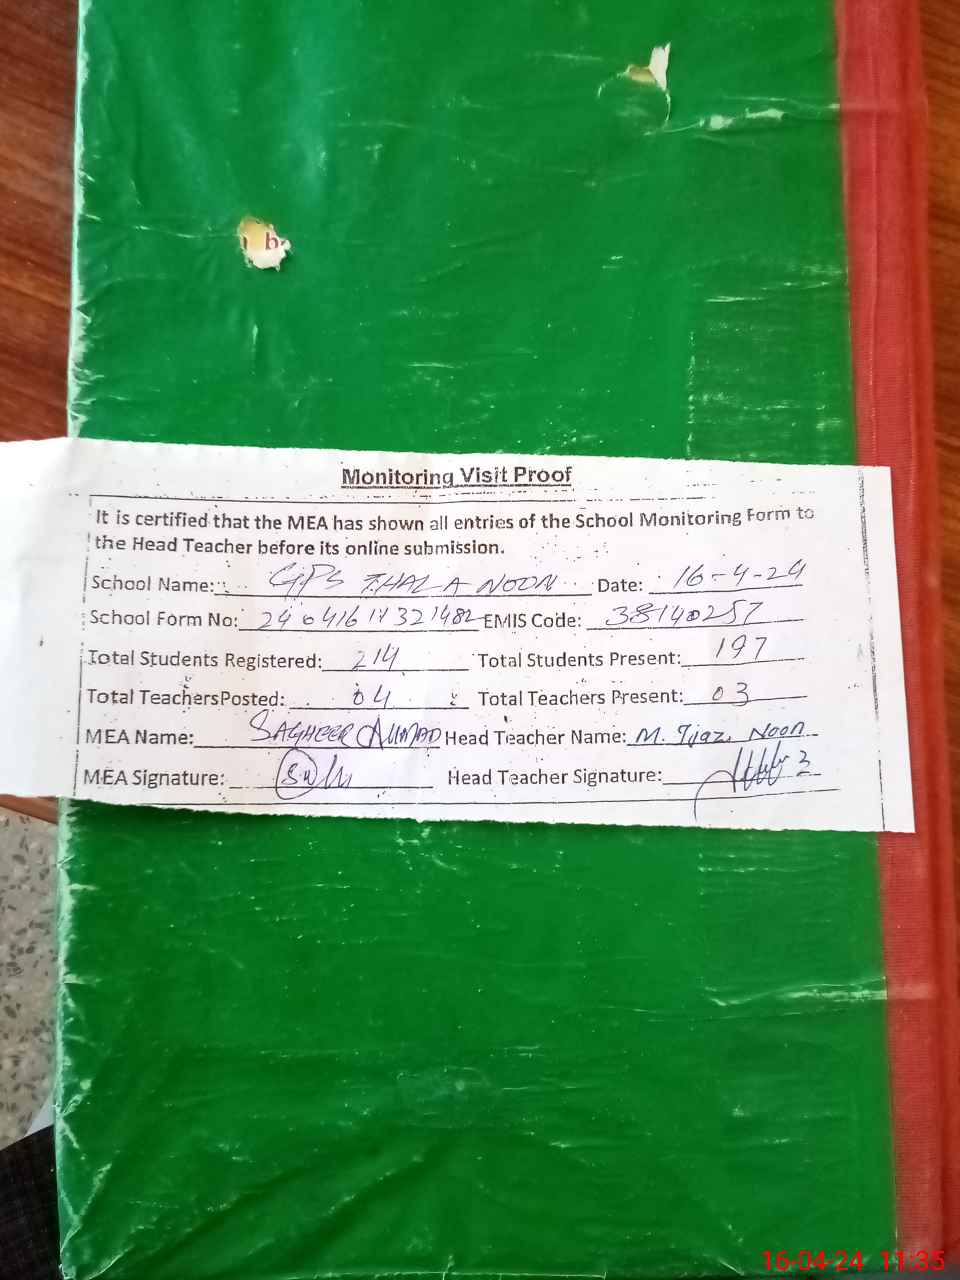 b
Monitoring Visit Proof
It is certified that the MEA has shown all entries of the School Monitoring Form to
the Head Teacher before its online submission.
School Name: GPS THALA NOON Date: 16-4-24
School Form No: EMIS Code: 38140257
Total Students Registered: 214 Total Students Present: 197
Total TeachersPosted: 04 Total Teachers Present: 03
MEA Name: SAGHEER AHMAD Head Teacher Name: M. Ijaz Noon
MEA Signature: Head Teacher Signature:
16-04-24 11:35